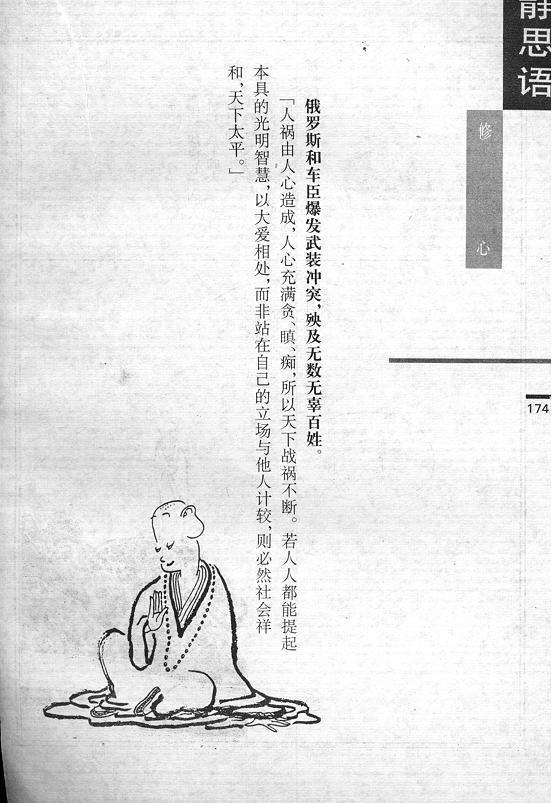 静思语
修心
174
俄罗斯和车臣爆发武装冲突，殃及无数无辜百姓。
「人祸由人心造成，人心充满贪、瞋、痴，所以天下战祸不断。若人人都能提起
本具的光明智慧，以大爱相处，而非站在自己的立场与他人计较，则必然社会祥
和，天下太平。」